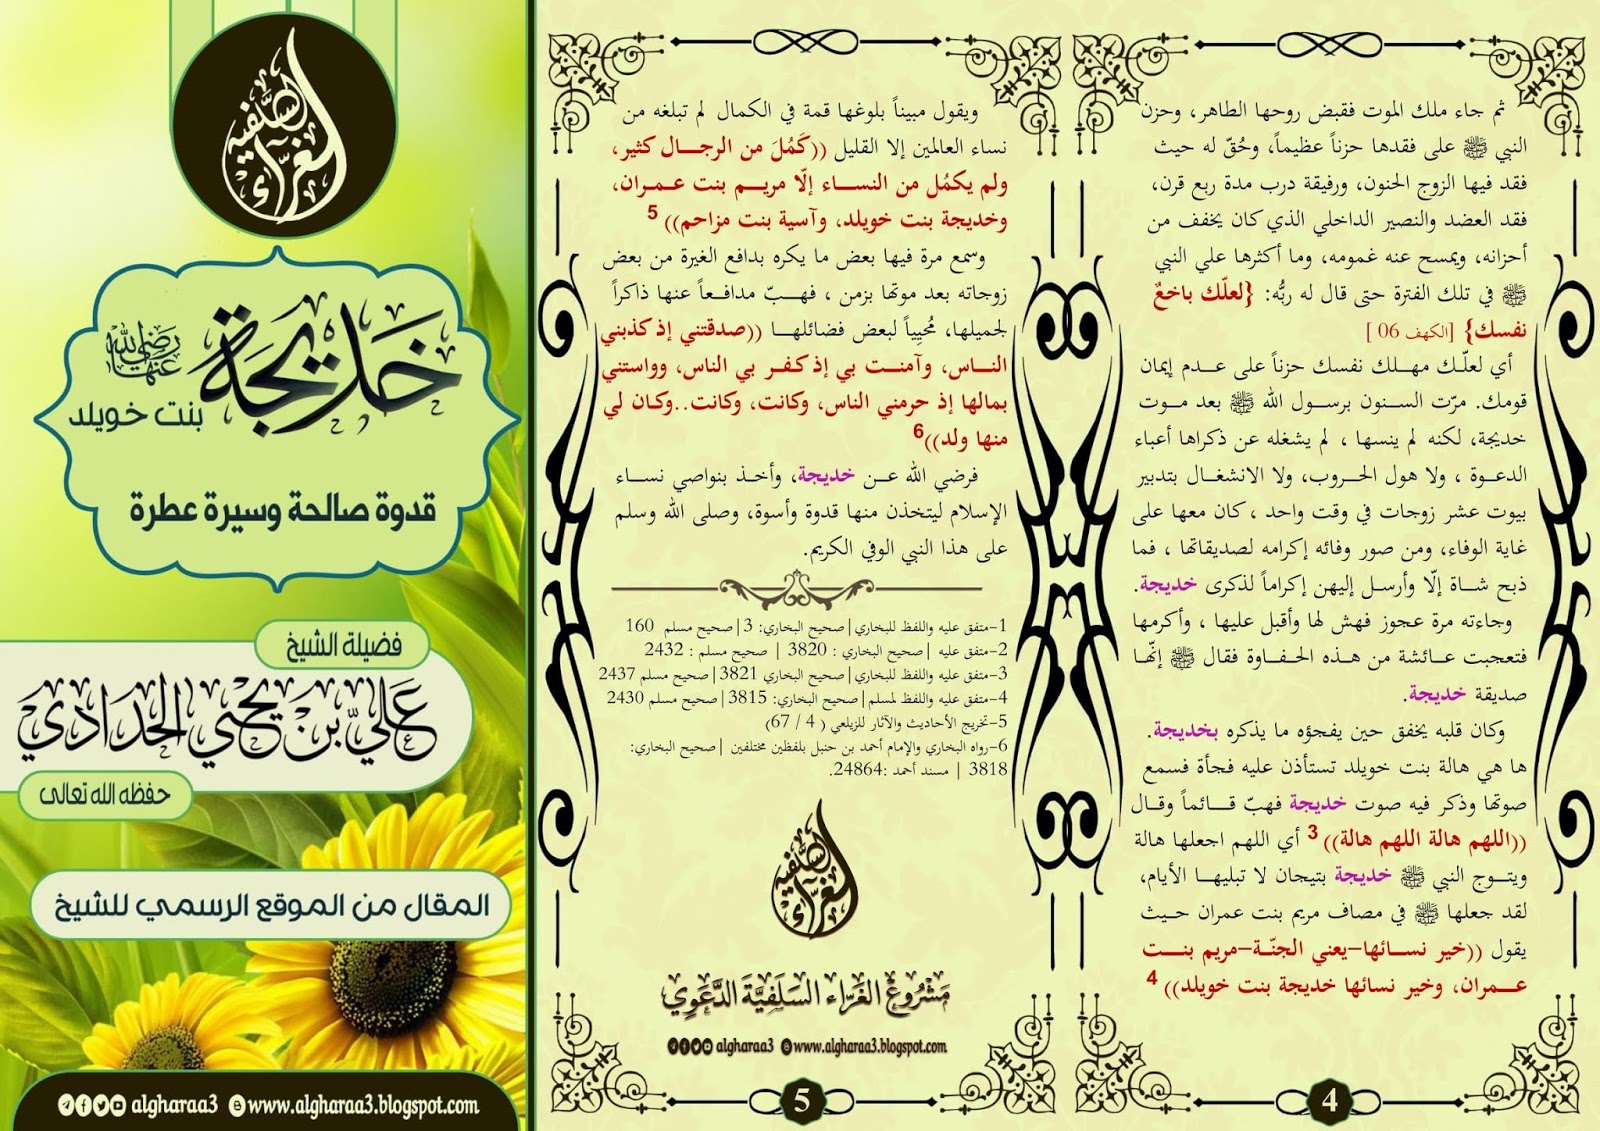 ثم جاء ملك الموت فقبض روحها الطاهر، وحزن
النبي ﷺ على فقدها حزناً عظيماً، وحُقّ له حيث
فقد فيها الزوج الحنون، ورفيقة درب مدة ربع قرن،
فقد العضد والنصير الداخلي الذي كان يخفف من
أحزانه، ويمسح عنه غمومه، وما أكثرها علي النبي
ﷺ في تلك الفترة حتى قال له ربُّه: {لعلّك باخعٌ
نفسك} [الكهف 06 ]
أي لعلّـك مهـــلك نفسك حزناً على عـــدم إيمان
قومك. مرّت الســنون برســول الله ﷺ بعد مـــوت
خديجة، لكنه لم ينسها ، لم يشغله عن ذكراها أعباء
الدعـوة ، ولا هول الحــروب، ولا الانشغــال بتدبير
بيوت عشر زوجات في وقت واحد ، كان معها على
غاية الوفاء، ومن صور وفائه إكرامه لصديقاتها ، فما
ذبح شــاة إلّا وأرســل إليهن إكراماً لذكرى خديجة.
وجاءته مرة عجوز فهش لها وأقبل عليها ، وأكرمها
فتعجبت عــائشة من هــذه الحــفــاوة فقال ﷺ إنّهــا
صديقة خديجة.
وكان قلبه يخفق حين يفجؤه ما يذكره بخديجة.
ها هي هالة بنت خويلد تستأذن عليه فجأة فسمع
صوتها وذكر فيه صوت خديجة فهبّ قــائماً وقــال
((اللهم هالة اللهم هالة)) 3 أي اللهم اجعلها هالة
ويتــوج النبي ﷺ خديجة بتيجان لا تبليهــا الأيام،
لقد جعلها ﷺ في مصاف مريم بنت عمران حــيث
يقول ((خير نســائها-يعني الجنّــة-مريم بنـــت
عــمران، وخير نسائها خديجة بنت خويلد)) 4
4
ويقول مبيناً بلوغها قمة في الكمال لم تبلغه من
نساء العالمين إلا القليل ((كَمُلَ من الرجــال كثير،
ولم يكمُل من النســـاء إلّا مريـــم بنت عــمـران،
وخديجة بنت خويلد، وآسية بنت مزاحم)) 5
وسمع مرة فيها بعض ما يكره بدافع الغيرة من بعض
زوجاته بعد موتها بزمن ، فهــبّ مدافــعاً عنها ذاكراً
لجميلها، مُحيياً لبعض فضائلهــا ((صدقتني إذ كذبني
النــاس، وآمنــت بي إذ كـفــر بي الناس، وواستني
بمالها إذ حرمني الناس، وكانت، وكانت..وكـان لي
منها ولد))6
فرضي الله عـــن خديجة، وأخـذ بنواصي نســـاء
الإسلام ليتخذن منها قدوة وأسوة، وصلى الله وسلم
على هذا النبي الوفي الكريم.
1-متفق عليه واللفظ للبخاري|صحيح البخاري: 3|صحيح مسلم 160
2-متفق عليه |صحيح البخاري : 3820 | صحيح مسلم : 2432
3-متفق عليه واللفظ للبخاري|صحيح البخاري 3821|صحيح مسلم 2437
4-متفق عليه واللفظ لمسلم|صحيح البخاري: 3815|صحيح مسلم 2430
5-تخريج الأحاديث والآثار للزيلعي ( 4 / 67)
6-رواه البخاري والإمام أحمد بن حنبل بلفظين مختلفين |صحيح البخاري:
3818 | مسند أحمد :24864.
الغراء السلفية
مَشْرُوعُ الغَرَّاء السَلَفِيَّة الدَّعَوِي
algharaa3 www.algharaa3.blogspot.com
5
الغراء السلفية
خديجة رضي الله عنها
بنت خويلد
قدوة صالحة وسيرة عطرة
فضيلة الشيخ
علي بن يحيى الحدادي
حفظه الله تعالى
المقال من الموقع الرسمي للشيخ
algharaa3 www.algharaa3.blogspot.com